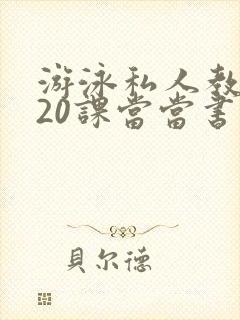 游泳私人教
20課當當書
貝尔德